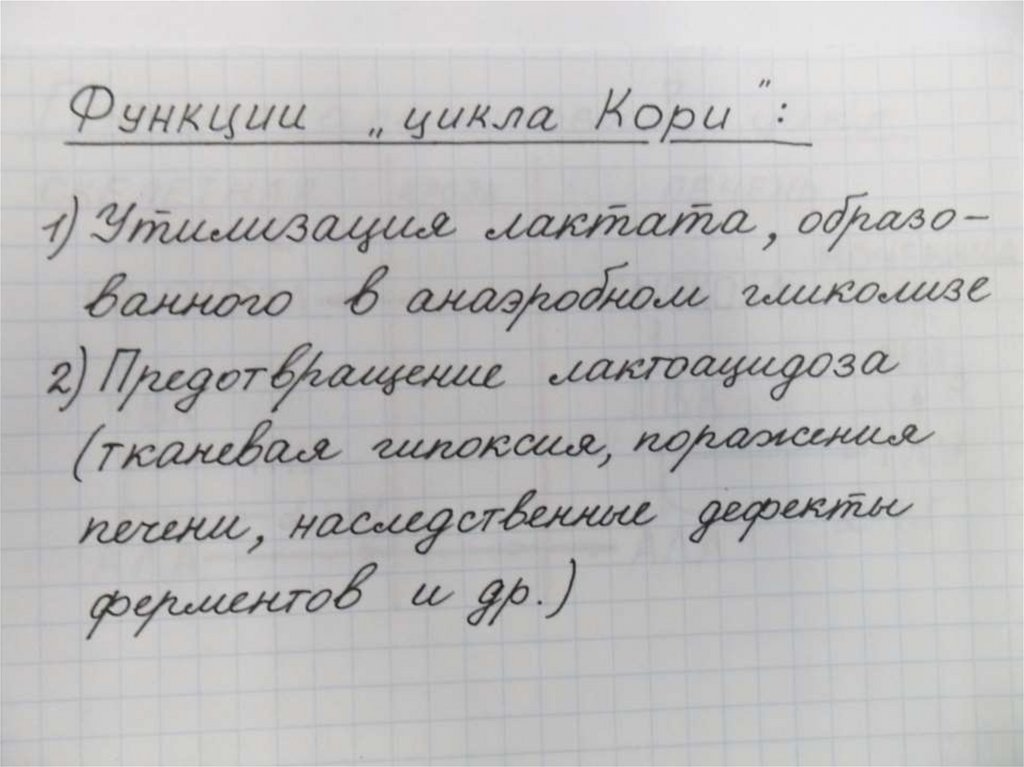 Функции „цикла Кори":
1) Утилизация лактата, образо-
ванного в анаэробном гликолизе
2) Предотвращение лактоацидоза
(тканевая гипоксия, поражения
печени, наследственные дефекты
ферментов и др.)